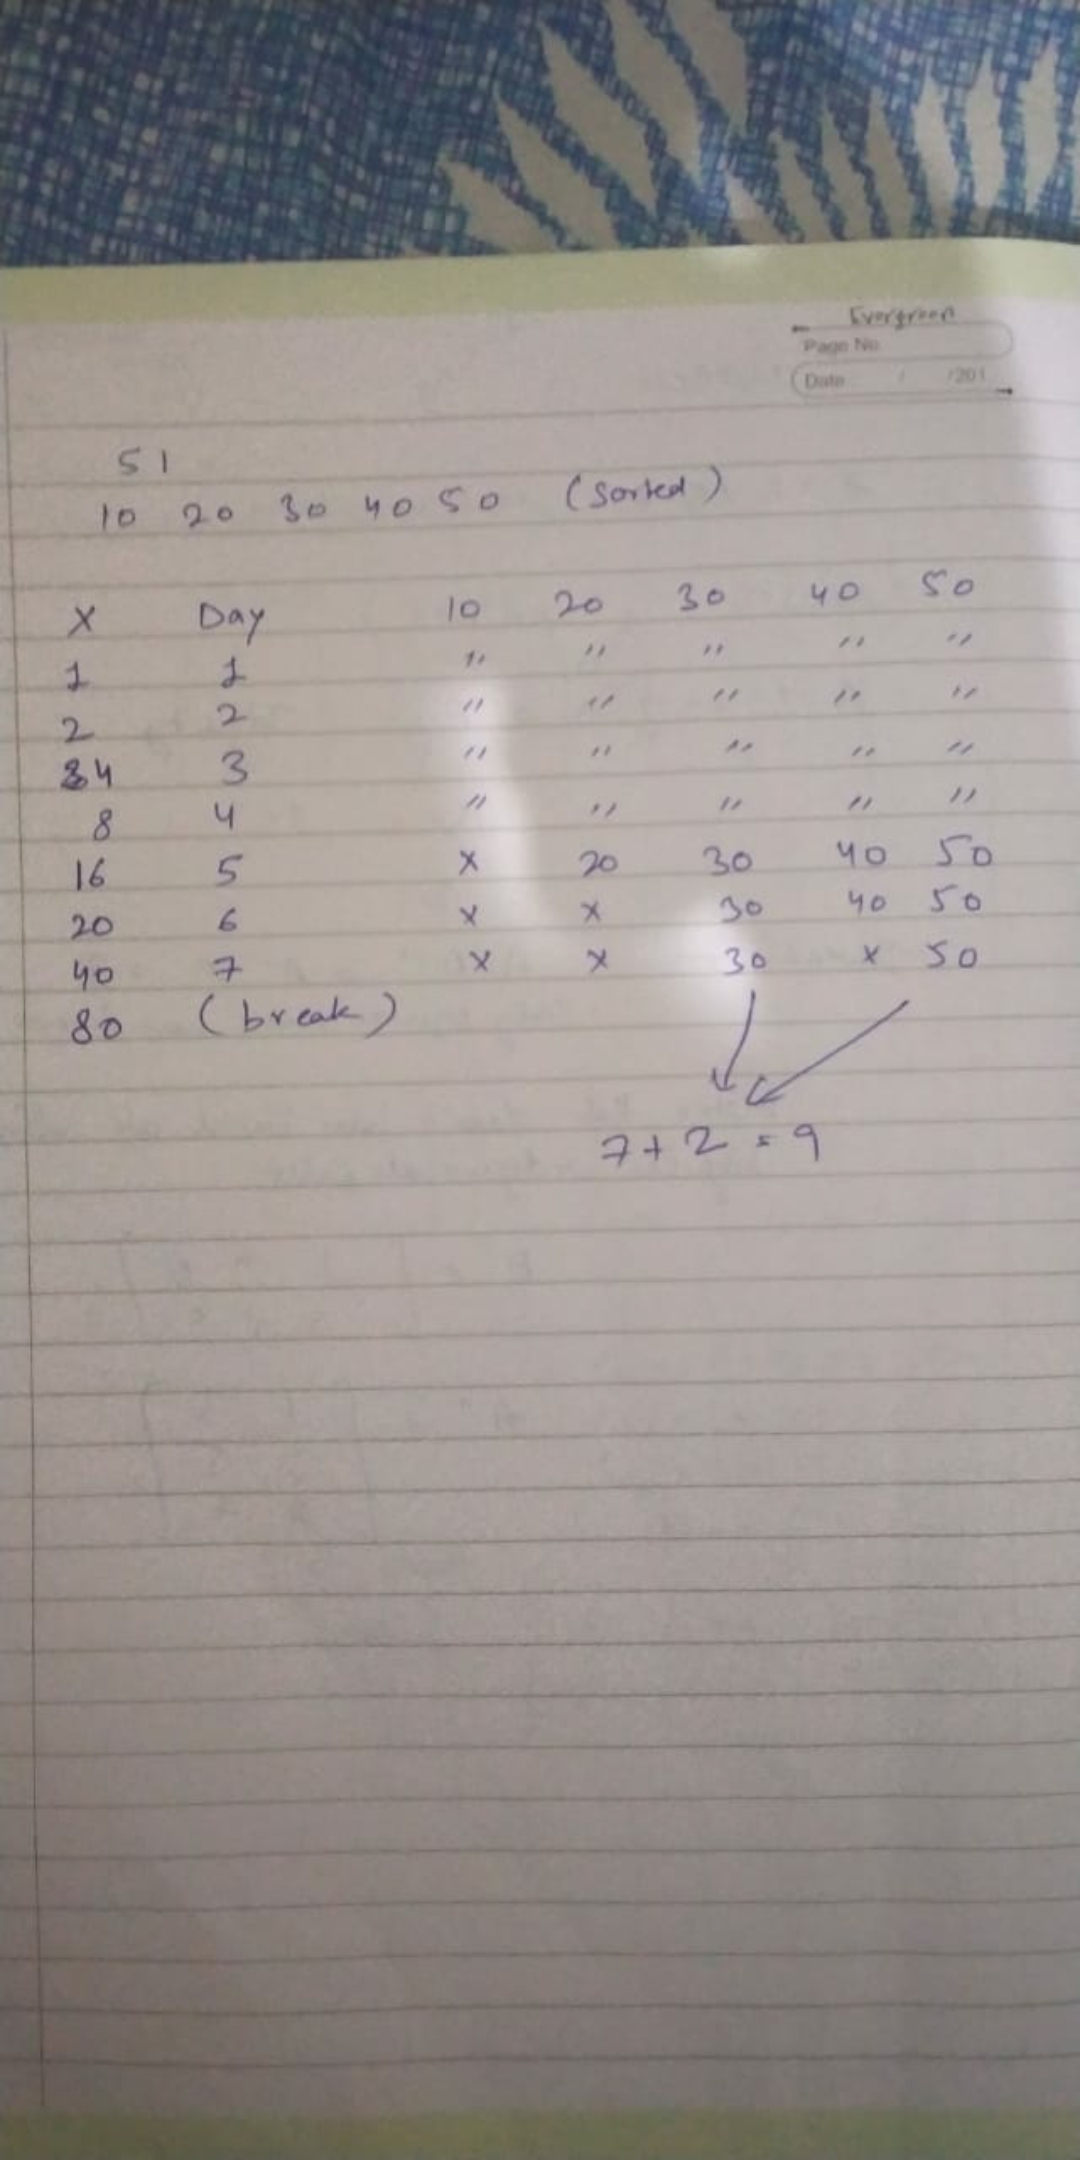 Evergreen
Page No.
Date / /201
5 1
10 20 30 40 50 (Sorted)
X Day 10 20 30 40 50
1 1 " " " " "
2 2 " " " " "
4 3 " " " " "
8 4 " " " " "
16 5 x 20 30 40 50
20 6 x x 30 40 50
40 7 x x 30 x 50
80 (break)
7 + 2 = 9